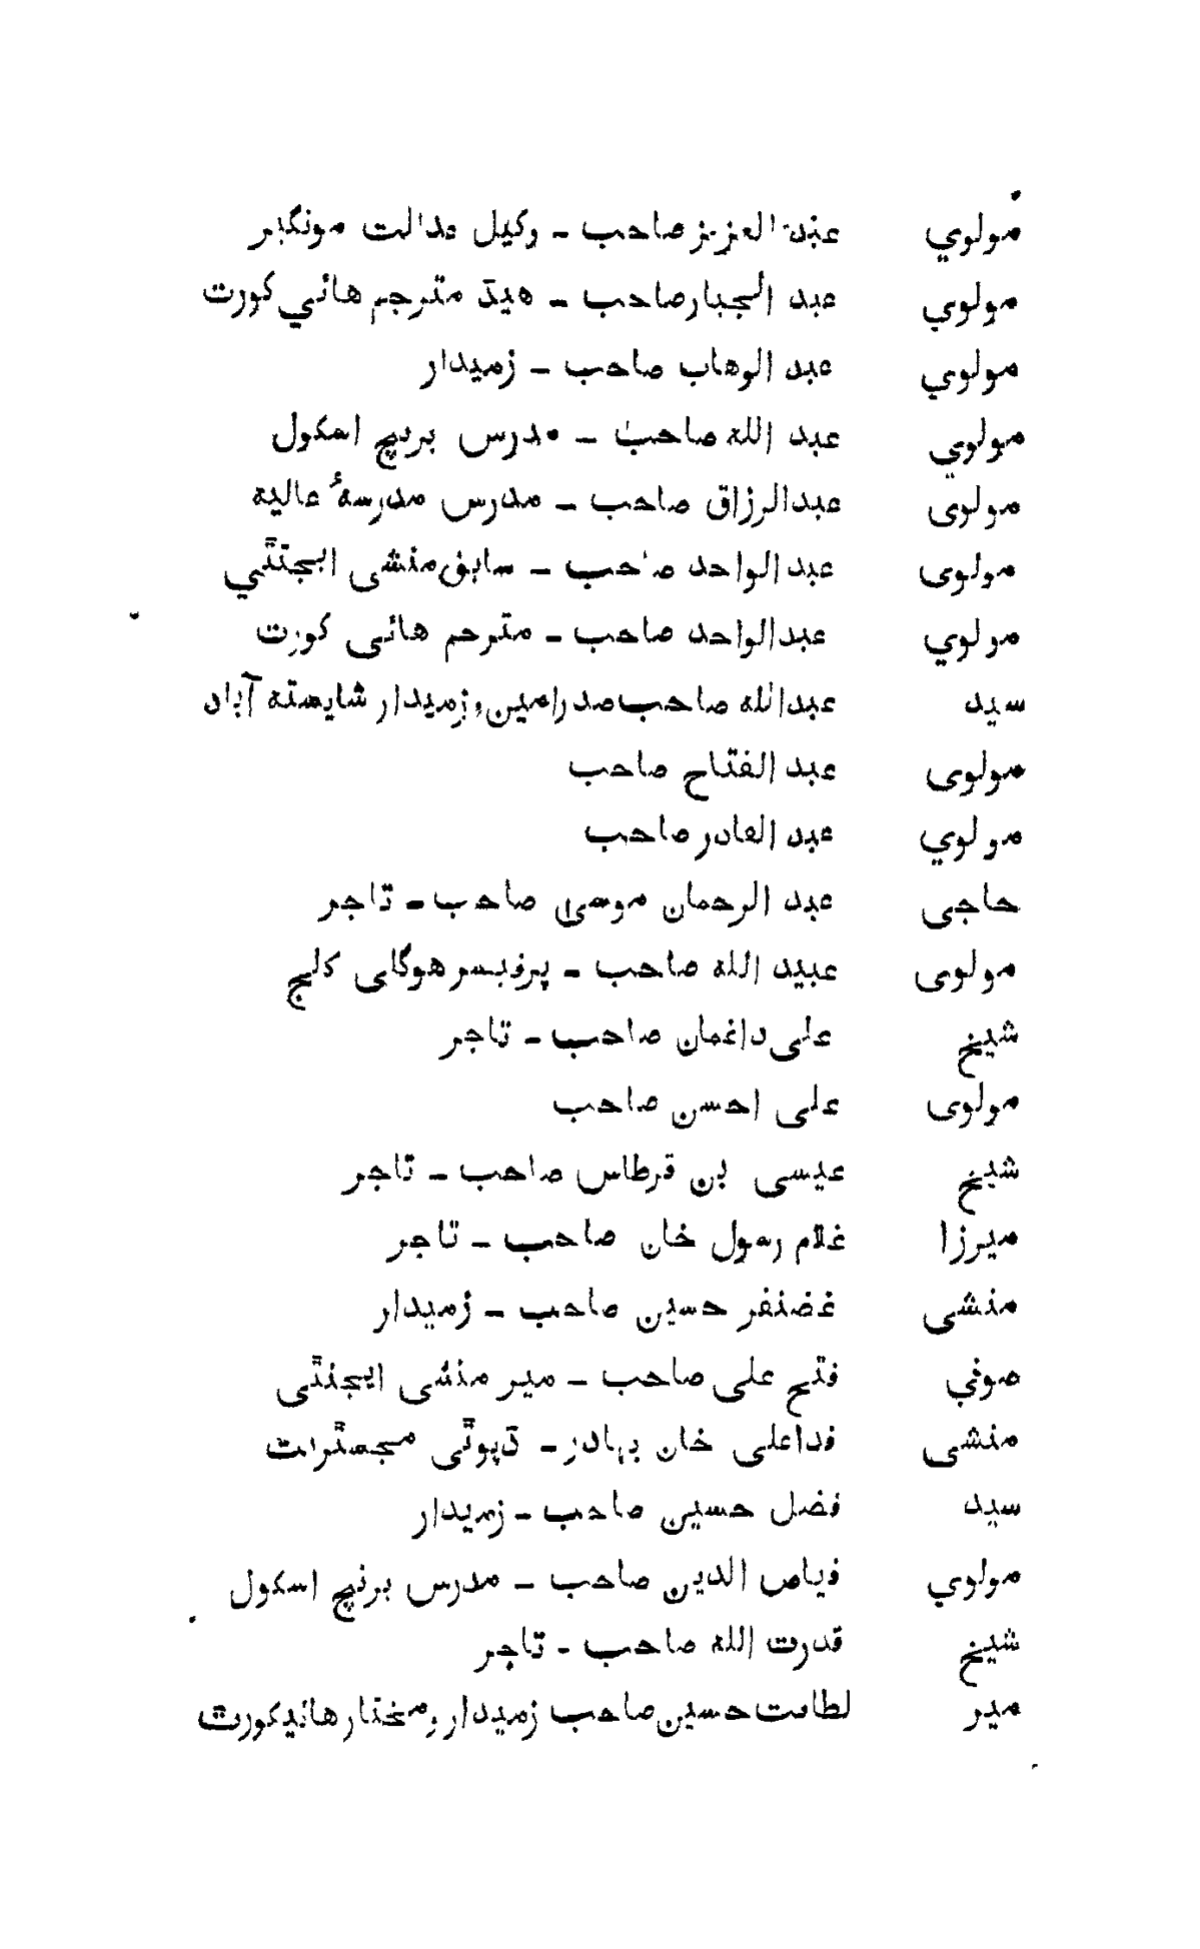 مولوي عبد العزيز صاحب - وكيل عدالت مونگير
مولوي عبد الجبار صاحب - هيڈ مترجم هائي كورت
مولوي عبد الوهاب صاحب - زميندار
مولوي عبد الله صاحب - مدرس برنچ اسكول
مولوى عبدالرزاق صاحب - مدرس مدرسهٔ عاليه
مولوى عبد الواحد صاحب - سابق منشى ايجنٹي
مولوي عبدالواحد صاحب - مترجم هائى كورت
سيد عبدالله صاحب صدر امين و زميندار شايسته آباد
مولوى عبد الفتاح صاحب
مولوي عبد القادر صاحب
حاجى عبد الرحمان موسى صاحب - تاجر
مولوى عبيد الله صاحب - پرفيسر هوگلى كالج
شيخ على داغمان صاحب - تاجر
مولوى على احسن صاحب
شيخ عيسى بن قرطاس صاحب - تاجر
ميرزا غلام رسول خان صاحب - تاجر
منشى غضنفر حسين صاحب - زميندار
صوفي فتح على صاحب - مير منشى ايجنٹى
منشى فداعلى خان بهادر - ڈپوٹى مجسٹريت
سيد فضل حسين صاحب - زميندار
مولوي فياض الدين صاحب - مدرس برنچ اسكول
شيخ قدرت الله صاحب - تاجر
مير لطافت حسين صاحب زميندار و مختار هائيكورت